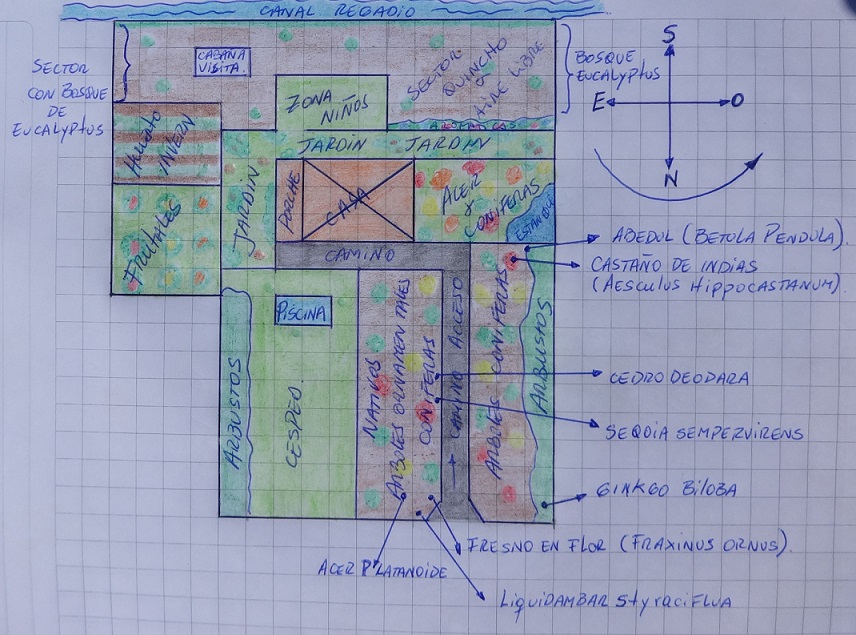 CANAL REGADIO
SECTOR
CON BOSQUE
DE
EUCALYPTUS
CABAÑA
VISITA.
SECTOR
QUINCHO
Y
AIRE LIBRE
BOSQUE
EUCALYPTUS
S
E
O
N
ZONA
NIÑOS
INVERN
JARDIN JARDIN
FRUTALES
JARDIN
PORCHE
CASA
ACER
Y
CONIFERAS
ESTANQUE
CAMINO
ABEDUL (BETULA PENDULA).
CASTAÑO DE INDIAS
(AESCULUS HIPPOCASTANUM).
PISCINA
ARBUSTOS
CESPED.
NATIVOS
ARBOLES ORNAMENTALES
CONIFERAS
CAMINO ACCESO
ARBOLES CONIFERAS
ARBUSTOS
CEDRO DEODARA
SEQOIA SEMPERVIRENS
GINKGO BILOBA
FRESNO EN FLOR (FRAXINUS ORNUS).
ACER PLATANOIDE
LIQUIDAMBAR STYRACIFLUA